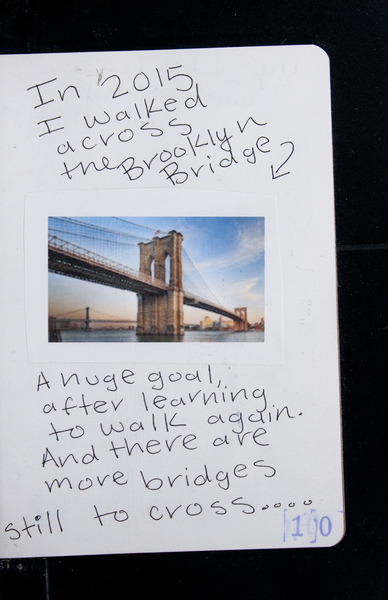 In 2015
I walked
across
the Brooklyn
Bridge
A huge goal,
after learning
to walk again.
And there are
more bridges
still to cross.....